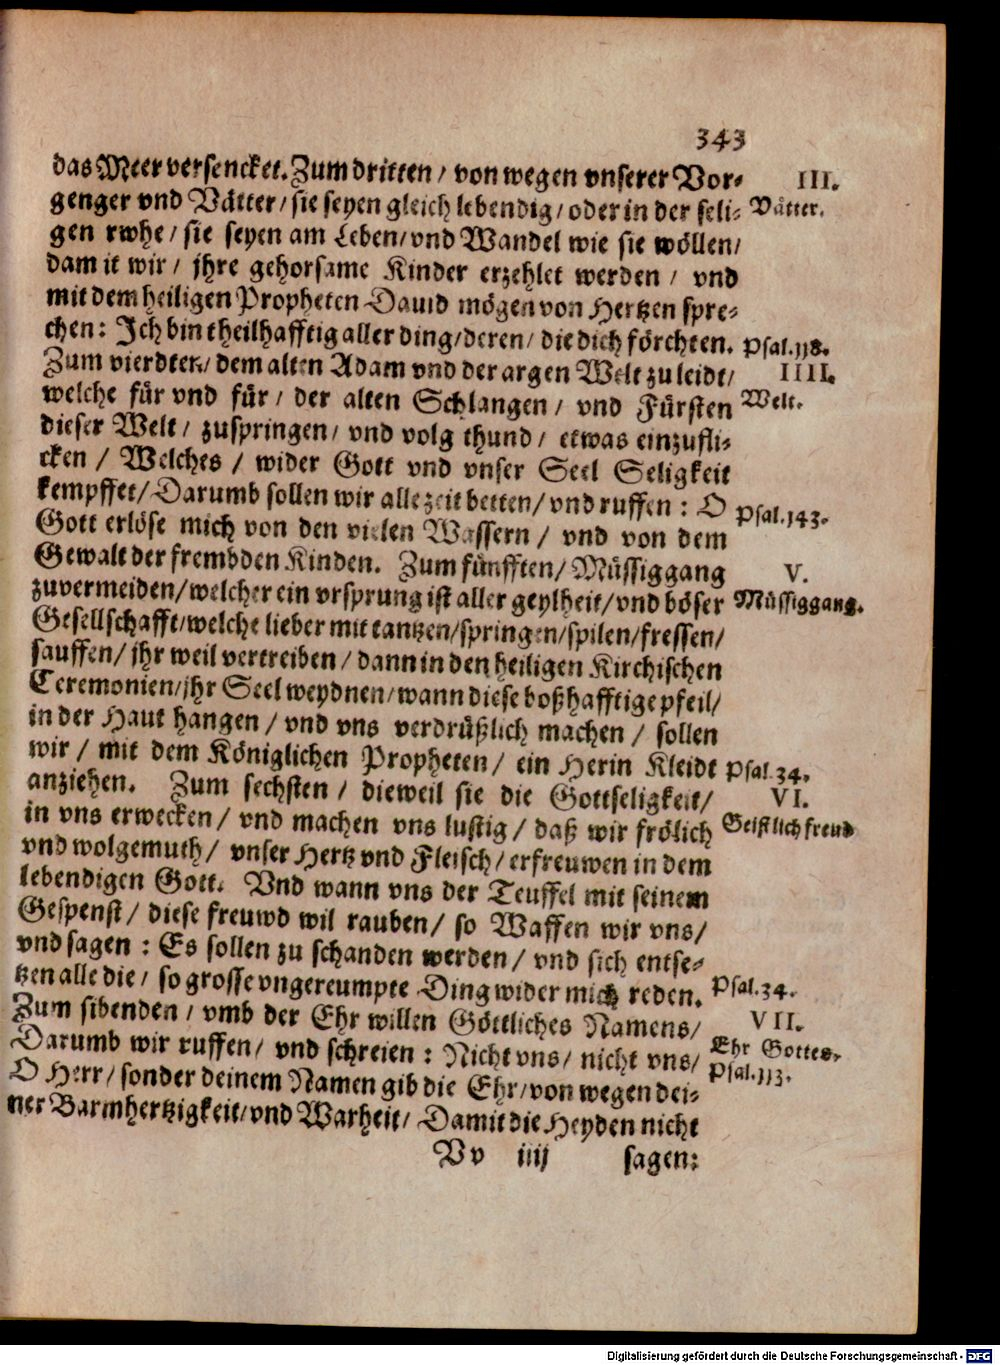 343
das Meer versencket. Zum dritten / von wegen vnserer Vor-
III.
genger vnd Vätter / sie seyen gleich lebendig / oder in der seli-
Vätter.
gen rwhe / sie seyen am Leben / vnd Wandel wie sie wöllen /
damit wir / jhre gehorsame Kinder erzehlet werden / vnd
mit dem heiligen Propheten Dauid mögen von Hertzen spre-
chen: Ich bin theilhafftig aller ding / deren / die dich förchten.
Psal. 118.
Zum vierdten / dem alten Adam vnd der argen Welt zu leidt /
IIII.
welche für vnd für / der alten Schlangen / vnd Fürsten
Welt.
dieser Welt / zuspringen / vnd volg thund / etwas einzufli-
cken / Welches / wider Gott vnd vnser Seel Seligkeit
kempffet / Darumb sollen wir alle zeit betten / vnd ruffen : O
Psal. 143.
Gott erlöse mich von den vielen Wassern / vnd von dem
Gewalt der frembden Kinden. Zum fünfften / Müssiggang
V.
zuvermeiden / welcher ein vrsprung ist aller geylheit / vnd böser
Müssiggang.
Gesellschafft / welche lieber mit tantzen / springen / spilen / fressen /
sauffen / jhr weil vertreiben / dann in den heiligen Kirchischen
Ceremonien / jhr Seel weydnen / wann diese boßhafftige pfeil /
in der Haut hangen / vnd vns verdrüßlich machen / sollen
wir / mit dem Königlichen Propheten / ein Herin Kleidt
Psal. 34.
anziehen. Zum sechsten / dieweil sie die Gottseligkeit /
VI.
in vns erwecken / vnd machen vns lustig / daß wir frölich
Geistlich freud
vnd wolgemuth / vnser Hertz vnd Fleisch / erfreuwen in dem
lebendigen Gott. Vnd wann vns der Teuffel mit seinem
Gespenst / diese freuwd wil rauben / so Waffen wir vns /
vnd sagen : Es sollen zu schanden werden / vnd sich entse-
tzen alle die / so grosse vngereumpte Ding wider mich reden.
Psal. 34.
Zum sibenden / vmb der Ehr willen Göttliches Namens /
VII.
Darumb wir ruffen / vnd schreien : Nicht vns / nicht vns /
Ehr Gottes.
O Herr / sonder deinem Namen gib die Ehr / von wegen dei-
Psal. 113.
ner Barmhertzigkeit / vnd Warheit / Damit die Heyden nicht
Vv iiij sagen:
Digitalisierung gefördert durch die Deutsche Forschungsgemeinschaft - DFG